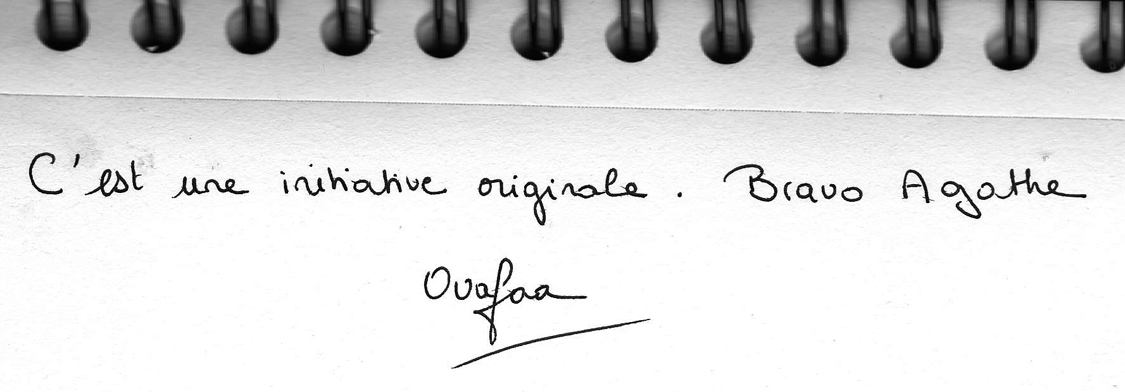 C'est une initiative originale. Bravo Agathe
Ouafaa